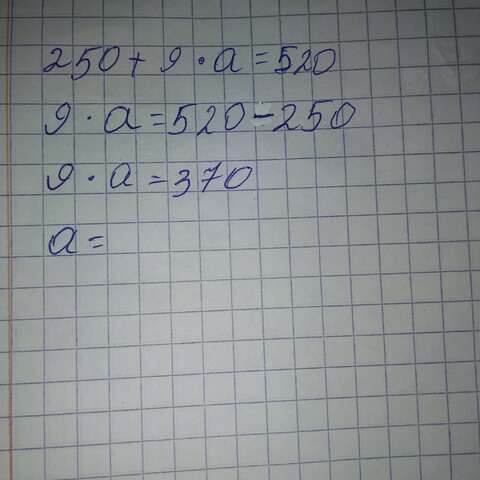 250 + 9 · a = 520
9 · a = 520 - 250
9 · a = 370
a =